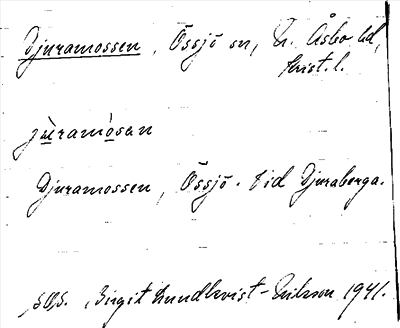 Djuramossen, Össjö sn, N. Åsbo hd,
Krist. l.
jùramósan
Djuramossen, Össjö. Vid Djuraberga.
Birgit Lundkvist-Nilsson 1941.